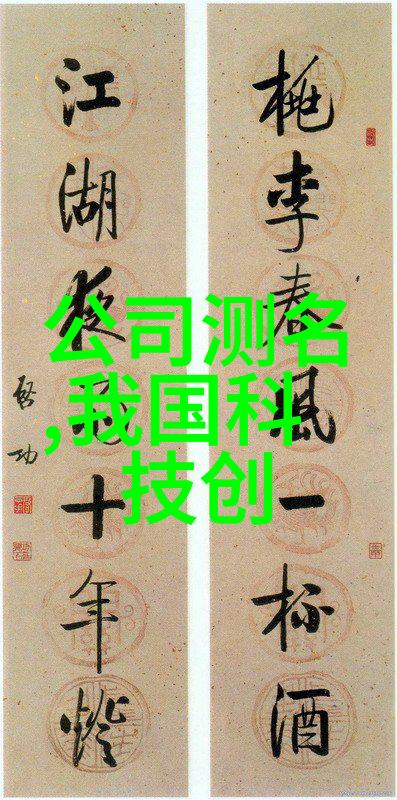 桃李春風一杯酒
江湖夜雨十年燈
啓功
公司测名
,我国科
技创